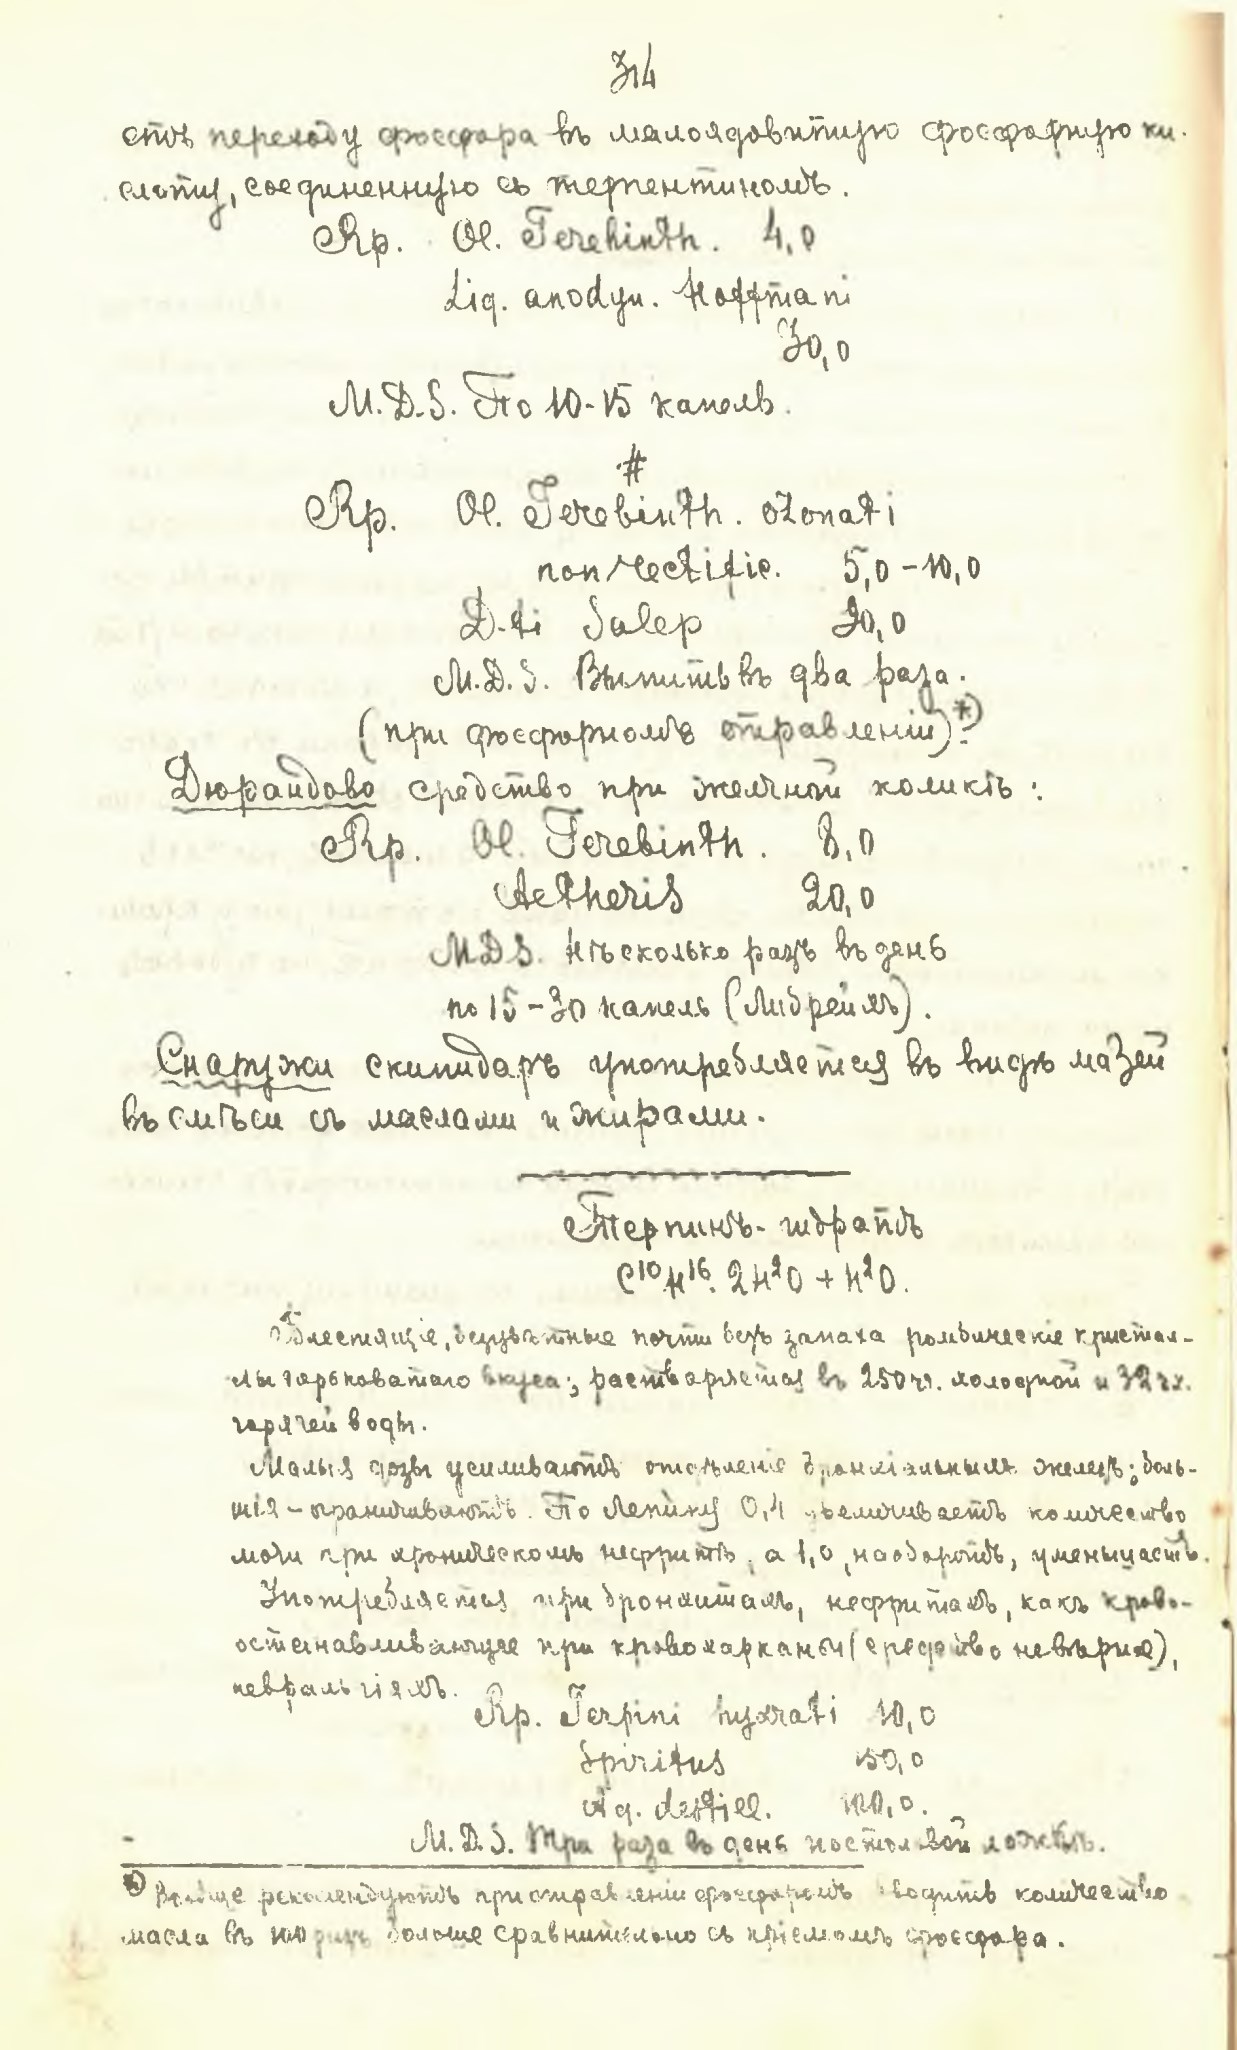 314
ств переходу фосфора въ малоядовитую фосфорную ки-
слоту, соединенную съ терпентиномъ.
Rp. Ol. Terebinth. 4,0
Liq. anodyn. Hoffmani
30,0
M.D.S. По 10-15 капель.
#
Rp. Ol. Terebinth. ozonati
non rectific. 5,0-10,0
D-ti Salep
M.D.S. Выпить въ два раза.
(при фосфорномъ отравленіи)*).
Дюрандово средство при желчной коликѣ:
Rp. Ol. Terebinth. 8,0
Aetheris 20,0
MDS. Нѣсколько разъ въ день
по 15-30 капель (Либрейхъ).
Снаружи скипидаръ употребляется въ видѣ мазей
въ смѣси съ маслами и жирами.
Терпинъ-гидратъ
C¹⁰H¹⁶. 2H²O + H²O.
Блестящіе, безцвѣтные почти безъ запаха ромбическіе кристал-
лы горьковатаго вкуса; растворяется въ 250 ч. холодной и 32 ч.
горячей воды.
Малыя дозы усиливаютъ отдѣленіе бронхіальныхъ железъ; боль-
шія - ограничиваютъ. По Лепину 0,1 увеличиваетъ количество
мочи при хроническомъ нефритѣ, а 1,0, наоборотъ, уменьшаетъ.
Употребляется при бронхитахъ, нефритахъ, какъ крово-
останавливающее при кровохарканьи (средство невѣрное),
невральгіяхъ.
Rp. Terpini hydrati 10,0
Spiritus 150,0
Aq. destill. 100,0.
M.D.S. Три раза въ день по столовой ложкѣ.
*) Вообще рекомендуютъ при отравленіи фосфоромъ вводить количество
масла въ 100 разъ больше сравнительно съ пріемомъ фосфора.